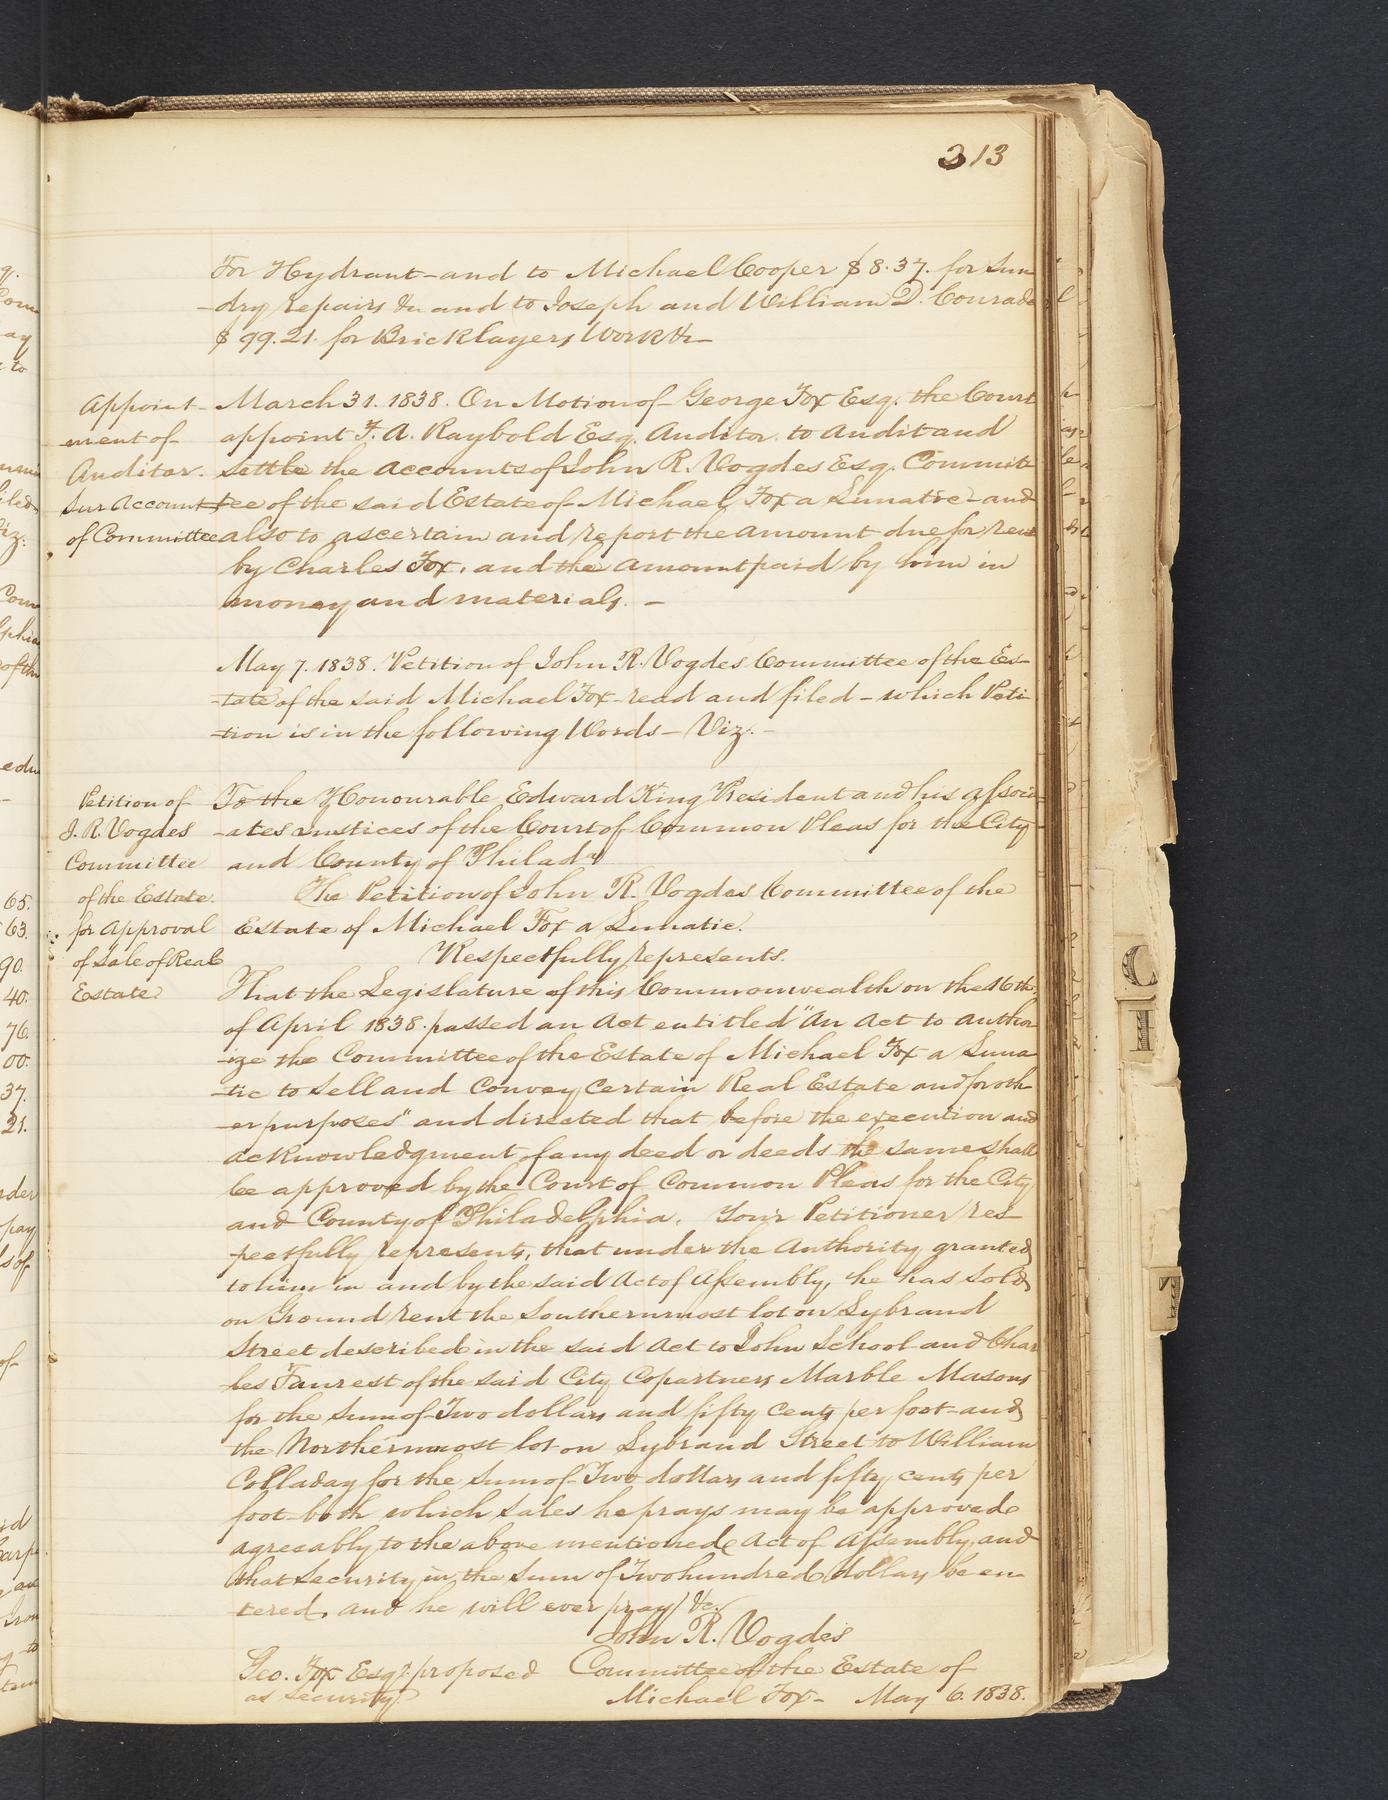 313
For Hydrant - and to Michael Cooper $8.37. for Sun
-dry repairs &c and to Joseph and William D. Conrade
$99.21. for Bricklayers Work &c -
Appoint-
ment of
Auditor.
Sur Account
of Committee
March 31. 1838. On Motion of George Fox Esq. the Court
appoint F. A. Raybold Esq. Auditor to Audit and
settle the accounts of John R. Vogdes Esq. Commit
tee of the said Estate of Michael Fox a Lunatic - and
also to ascertain and report the amount due for rent
by Charles Fox, and the amount paid by him in
money and materials. -
May 7. 1838. Petition of John R. Vogdes Committee of the Es-
-tate of the said Michael Fox - read and filed - which Peti
-tion is in the following Words - Viz. -
Petition of
J. R. Vogdes
Committee
of the Estate.
for Approval
of sale of Real
Estate.
To the Honourable Edward King President and his Associ-
-ates Justices of the Court of Common Pleas for the City
and County of Philada
The Petition of John R. Vogdes Committee of the
Estate of Michael Fox a Lunatic.
Respectfully represents.
That the Legislature of this Commonwealth on the 16th
of April 1838. passed an Act entitled "An Act to author
-ize the Committee of the Estate of Michael Fox a Luna
-tic to sell and Convey Certain Real Estate and for oth
-er purposes" and directed that before the execution and
acknowledgment of any deed or deeds the same shall
be approved by the Court of Common Pleas for the City
and County of Philadelphia. Your Petitioner res
-pectfully represents, that under the Authority granted
to him in and by the said Act of Assembly, he has sold
on Ground rent the Southernmost lot on Lybrand
Street described in the said Act to John School and Char
les Faurest of the said City Copartners Marble Masons
for the Sum of Two dollars and fifty Cents per foot - and
the Northernmost lot on Lybrand Street to William
Colladay for the Sum of Two dollars and fifty cents per
foot - both which sales he prays may be approved
agreeably to the above mentioned Act of Assembly, and
that security in the Sum of Two hundred dollars be en-
tered, and he will ever pray &c.
John R. Vogdes
Geo. Fox Esqr. proposed Committee of the Estate of
as security Michael Fox - May 6. 1838.